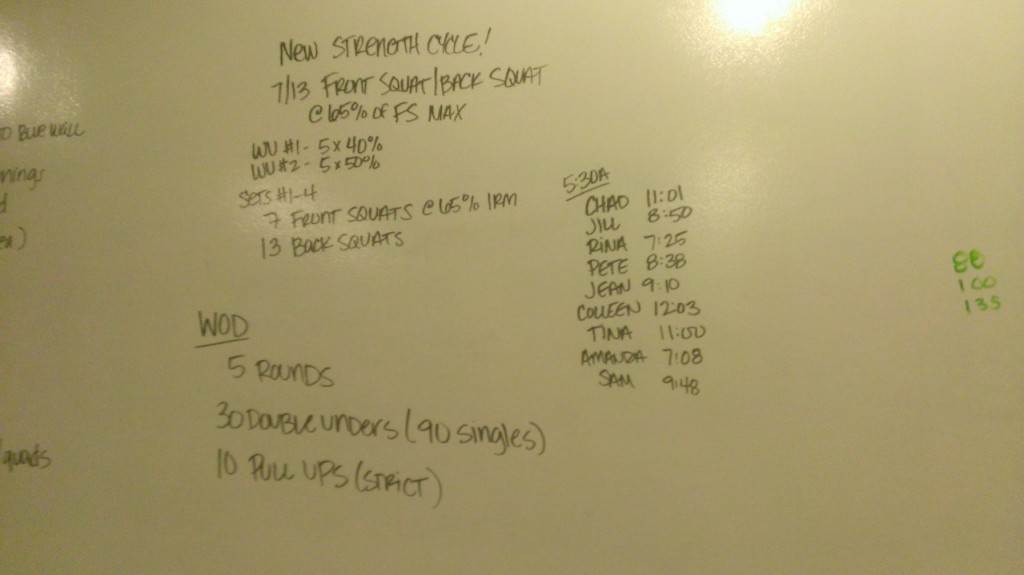 New STRENGTH CYCLE!
7/13 FRONT SQUAT/BACK SQUAT
@ 65% OF FS MAX
WU #1 - 5 x 40%
WU #2 - 5 x 50%
SETS #1-4
7 FRONT SQUATS @ 65% 1RM
13 BACK SQUATS
WOD
5 ROUNDS
30 DOUBLE UNDERS (90 singles)
10 PULL UPS (STRICT)
5:30A
CHAD 11:01
JILL 8:50
RINA 7:25
PETE 8:38
JEAN 9:10
COLLEEN 12:03
TINA 11:00
AMANDA 7:08
SAM 9:48
100
135
BLUE WALL
nings
quads